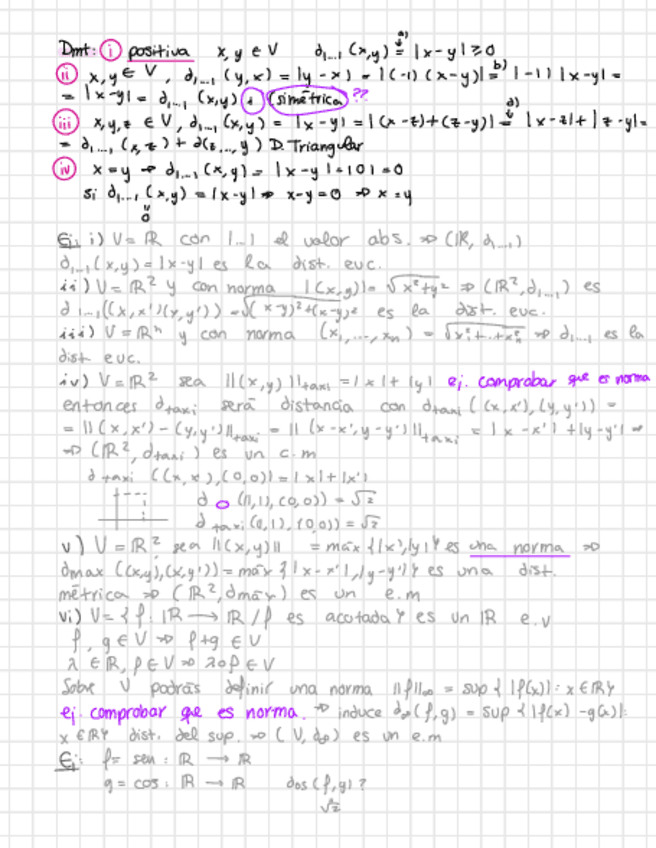 Dmt: (i) positiva x, y ∈ V d|...| (x,y) =^a) |x-y| ≥ 0
(ii) x, y ∈ V, d|...| (y,x) = |y-x| = |(-1) (x-y)| =^b) |-1| |x-y| =
= |x-y| = d|...| (x,y) (simétrica) ??
(iii) x,y,z ∈ V, d|...| (x,y) = |x-y| = |(x-z)+(z-y)| ≤^d) |x-z| + |z-y| =
= d|...| (x,z) + d(z,...,y) D. Triangular
(iv) x=y ⇒ d|...| (x,y) = |x-y| = |0| = 0
si d|...| (x,y) = |x-y| ⇒ x-y=0 ⇒ x=y
0
Ej: i) V=ℝ con |...| el valor abs. ⇒ (ℝ, d|...|)
d|...|(x,y)=|x-y| es la dist. euc.
ii) V=ℝ² y con norma |(x,y)|= √x²+y² ⇒ (ℝ²,d|...|) es
d|...|((x,x')(y,y')) = √(x-y)²+(x-y)² es la dist. euc.
iii) V=ℝⁿ y con norma (x₁,...,xₙ) = √x₁²+...+xₙ² ⇒ d|...| es la
dist euc.
iv) V=ℝ² sea ||(x,y)||taxi = |x|+|y| ej. comprobar que es norma
entonces dtaxi será distancia con dtaxi ((x,x'),(y,y')) =
= ||(x,x')-(y,y')||taxi = ||(x-x',y-y')||taxi = |x-x'|+|y-y'| ⇒
⇒ (ℝ²,dtaxi) es un c.m
dtaxi ((x,x'),(0,0))=|x|+|x'|
d ((1,1),(0,0)) = √2
dtaxi((1,1),(0,0)) = √2
v) V=ℝ², sea ||(x,y)|| = máx{|x|,|y|} es una norma ⇒
dmax ((x,y),(x,y'))= máx{|x-x'|,|y-y'|} es una dist.
métrica ⇒ (ℝ²,dmáx) es un e.m
vi) V={f: ℝ → ℝ / f es acotada} es un ℝ e.v
f, g ∈ V ⇒ f+g ∈ V
λ ∈ ℝ, f ∈ V ⇒ λ∘f ∈ V
Sobre V podrás definir una norma ||f||∞ = sup{|f(x)|: x∈ℝ}
ej. comprobar que es norma. ⇒ induce d∞(f,g) = sup{|f(x)-g(x)|:
x∈ℝ} dist. del sup. ⇒ (V,d∞) es un e.m
Ej: f= sen: ℝ → ℝ
g= cos: ℝ → ℝ dos(f,g)?
√2